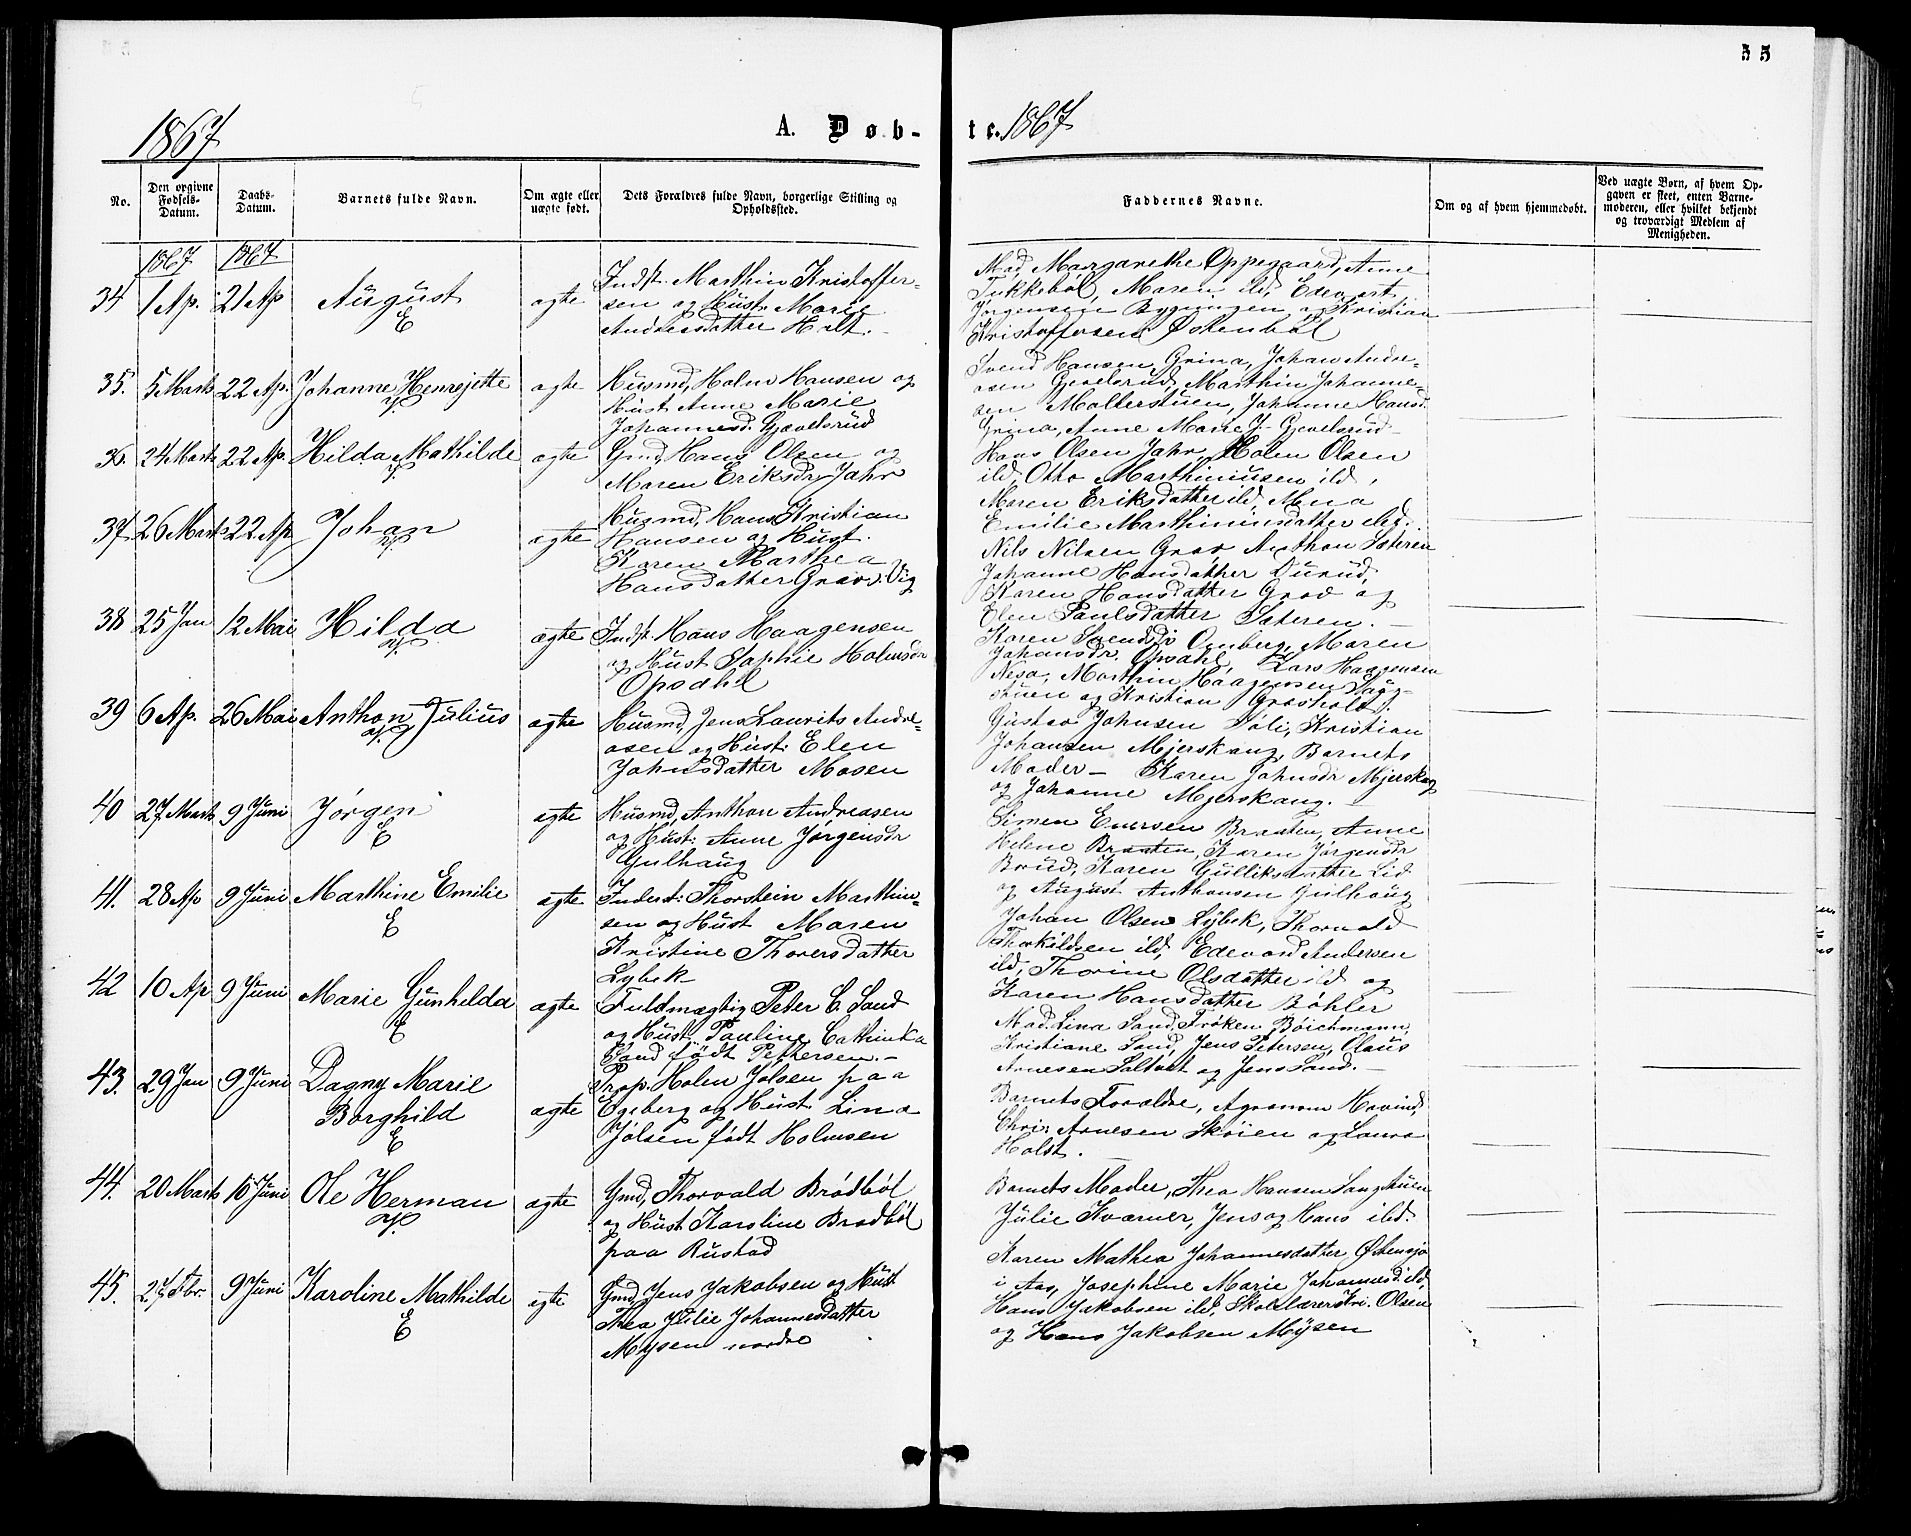 55
1867
A. Døb-
te. 1867
No.
Den opgivne Fødsels-Datum.
Daabs-Datum.
Barnets fulde Navn.
Om ægte eller uægte født.
Dets Forældres fulde Navn, borgerlige Stilling og Opholdssted.
Faddernes Navne.
Om og af hvem hjemmedøbt.
Ved uægte Børn, af hvem Op-
gaven er skeet, enten Barne-
moderen, eller hvilket bekjendt
og troværdigt Medlem af
Menigheden.
1867 1867
34 1 Ap. 21 Ap August ægte
E
Indst. Marthin Kristoffer-
sen og Hust. Marie
Andreasdatter Holt.
Mad. Margarethe Oppegaard, Anne
Tukkebøl, Maren ild, Edevart
Jørgensen Bygningen og Kristian
Kristoffersen Østenbøl
35. 5 Marts 22 Ap. Johanne Henrejette ægte
Husmd, Holm Hansen og
Hust Anne Marie
Johannesd. Gjævelsrud
Svend Hansen Grina, Johan Andre-
asen Gjevelsrud, Marthin Johanne-
sen Mollerstuen, Johanne Hansd.
Grina, Anne Marie J- Gjevelsrud-
36. 24 Marts 22 Ap. Hilda Mathilde ægte
Gmd, Hans Olsen og
Maren Eriksdr. Jahr
Hans Olsen Jahr, Holm Olsen
ild, Otto Marthiniusen ild,
Maren Eriksdatter ild, Mina
Emilie Marthiniusdatter ild.
37. 26 Marts 22 Ap Johan ægte
Husmd, Hans Kristian
Hansen og Hust.
Karen Marthea
Hansdatter Grav i Vig
Nils Nilsen Grav Anthon Sæteren
Johanne Hansdatter Durud,
Karen Hansdatter Grav og
Elen Paulsdatter Sæteren. -
38 25 Jan 12 Mai Hilda ægte
Indst. Hans Haagensen
og Hust Sophie Holmsdr
Opsahl
Karen Svendsdr Omberg, Maren
Johansdr. Opsahl, Lars Haagensen
Nesa, Marthin Haagensen
stuen og Kristian Grøsholt.
39 6 Ap. 26 Mai Anthon Julius ægte
Husmd, Jens Laurits Andre-
asen og Hust: Elen
Johnsdatter Mosen
Gustav Johnsen Doli, Kristian
Johansen Mjerskaug, Barnets
Moder- Karen Johnsdr Mjerskaug
og Johanne Mjerskaug.
40 27 Marts 9 Juni Jørgen ægte
E
Husmd, Anthon Andreasen
og Hust: Anne Jørgensdr
Gulhaug
Simen Eversen Braaten, Anne
Helene Braaten, Karen Jørgensdr
Brud, Karen Gulliksdatter Lid
og August Anthonsen Gulhaug
41. 28 Ap 9 Juni Marthine Emilie ægte
E
Inderst: Thorstein Marthin-
sen og Hust Maren
Kristine Thoversdatter
Lybek
Johan Olsen Lybek, Thorvald
Thorkildsen ild, Edevard Andersen
ild, Thorine Olsdatter ild og
Karen Hansdatter Bøhler
42 10 Ap 9 Juni Marie Gunhilda ægte
E
Fuldmægtig Peter C. Sand
og Hust. Pauline Cathinka
Sand født Pettersen.-
Mad. Lina Sand, Frøken Boichmann,
Kristiane Sand, Jens Petersen, Olaus
Arnesen Saltvet og Jens Sand.-
43. 29 Jan 9 Juni Dagny Marie
Borghild ægte
E
Prop. Holm Jølsen paa
Egeberg og Hust. Lina
Jølsen født Holmsen
Barnets Forældre, Agronom Hovind,
Chr. Arnesen Skøien og Laura
Holst.
44. 20 Marts 16 Juni Ole Herman ægte
Gmd, Thorvald Brødbøl
og Hust Karoline Brødbøl
paa Rustad
Barnets Moder, Thea Hansen Langstuen
Julie Kværner, Jens og Hans ild.
45. 27 Fbr. 9 Juni Karoline Mathilde ægte
E
Gmd, Jens Jakobsen og Hust
Thea Julie Johannesdatter
Mysen nordre
Karen Mathea Johannesdatter Østensjø
i Aas, Josephine Marie Johannesd. ild,
Hans Jakobsen ild, Skolelærer Kri. Olsen
og Hans Jakobsen Mysen